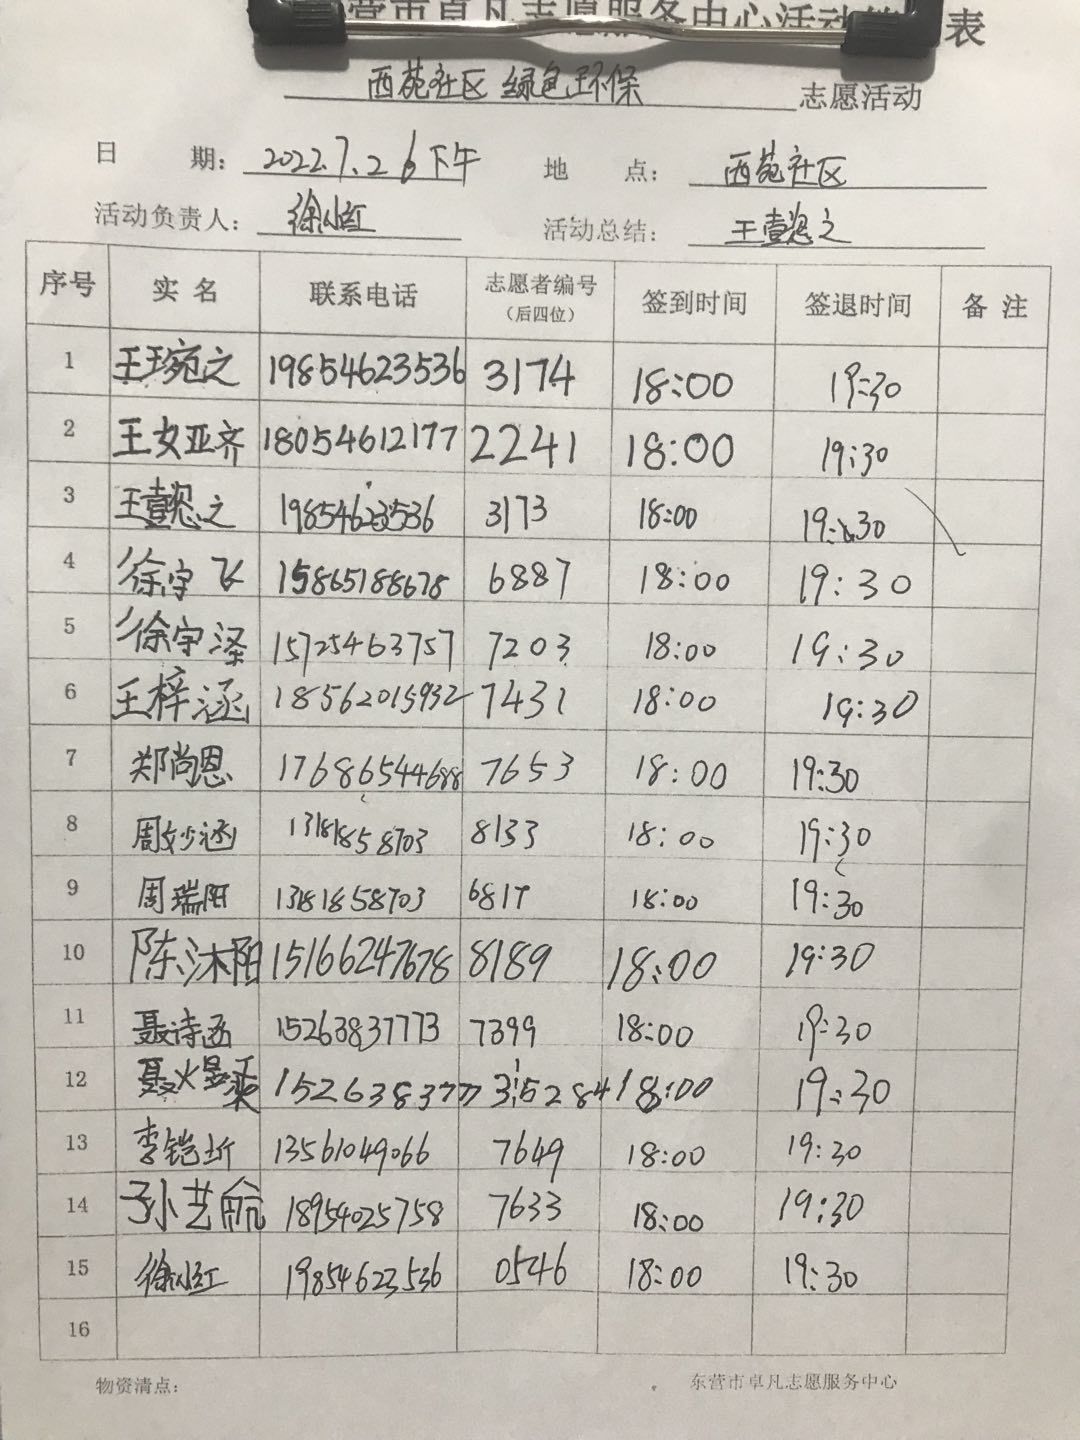 营市卓凡志愿服务中心活动 表
西苑社区 绿色环保 志愿活动
日 期： 2022.7.26下午 地 点： 西苑社区
活动负责人： 徐小红 活动总结： 王壹恩之
序号 实名 联系电话 志愿者编号（后四位） 签到时间 签退时间 备注
1 王琬之 19854623536 3174 18:00 19:30
2 王女亚齐 18054612177 2241 18:00 19:30
3 王 之 19854623536 3173 18:00 19:30
4 徐宇飞 15865188678 6887 18:00 19:30
5 徐宇泽 15725463757 7203 18:00 19:30
6 王梓涵 18562015932 7431 18:00 19:30
7 郑尚恩 17686544688 7653 18:00 19:30
8 周妙涵 13181858703 8133 18:00 19:30
9 周瑞阳 13181858703 681 18:00 19:30
10 陈沐阳 15166247678 8189 18:00 19:30
11 聂诗函 15263837773 7399 18:00 19:30
12 聂 15263837773 5284 18:00 19:30
13 李铠圻 13561049066 7649 18:00 19:30
14 孙艺航 18954025758 7633 18:00 19:30
15 徐小红 19854623536 0546 18:00 19:30
16
物资清点： 东营市卓凡志愿服务中心